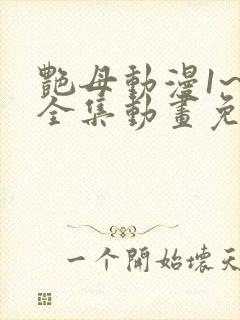 艷母動漫1~
全集動畫免
一个開始壞天